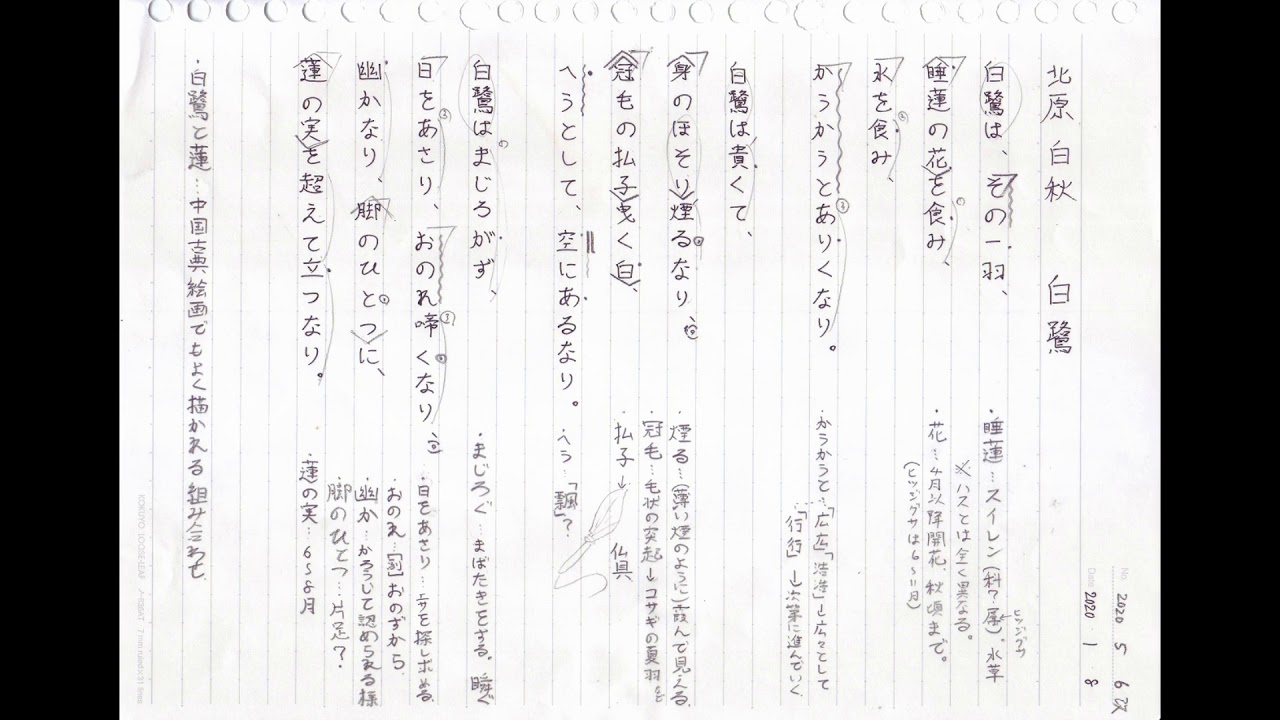 北原白秋　白鷺
白鷺は、その一羽、
睡蓮の花を食み、
水を食み、
かうかうとありくなり。
白鷺は貴くて、
身のほそり煙るなり、
冠毛の払子曳く白、
へうとして、空にあるなり。
白鷺はまじろがず、
日をあさり、おのれ啼くなり、
幽かなり、脚のひとつに、
蓮の実を超えて立つなり。
・睡蓮…スイレン(科?属)。水草
ヒツジグサ
※ハスとは全く異なる。
・花…4月以降開花、秋頃まで。
(ヒツジグサは6〜11月)
・かうかうと…「広広」「浩浩」→広々として
「行行」→次第に進んでいく
・煙る…(薄い煙のように)霞んで見える
・冠毛…毛状の突起→コサギの夏羽を
・払子→　仏具
・へう…「飄」?
・まじろぐ…まばたきをする。瞬ぐ
・日をあさり…エサを探し求める
・おのれ…[副]おのずから
・幽か…かろうじて認められる様
・脚のひとつ…片足?
・蓮の実…6〜8月
・白鷺と蓮…中国古典絵画でもよく描かれる組み合わせ.
No. 2020 5 6 改
Date 2020 1 8
KOKUYO LOOSE-LEAF ノ-836AT 7 mm ruled×31 lines